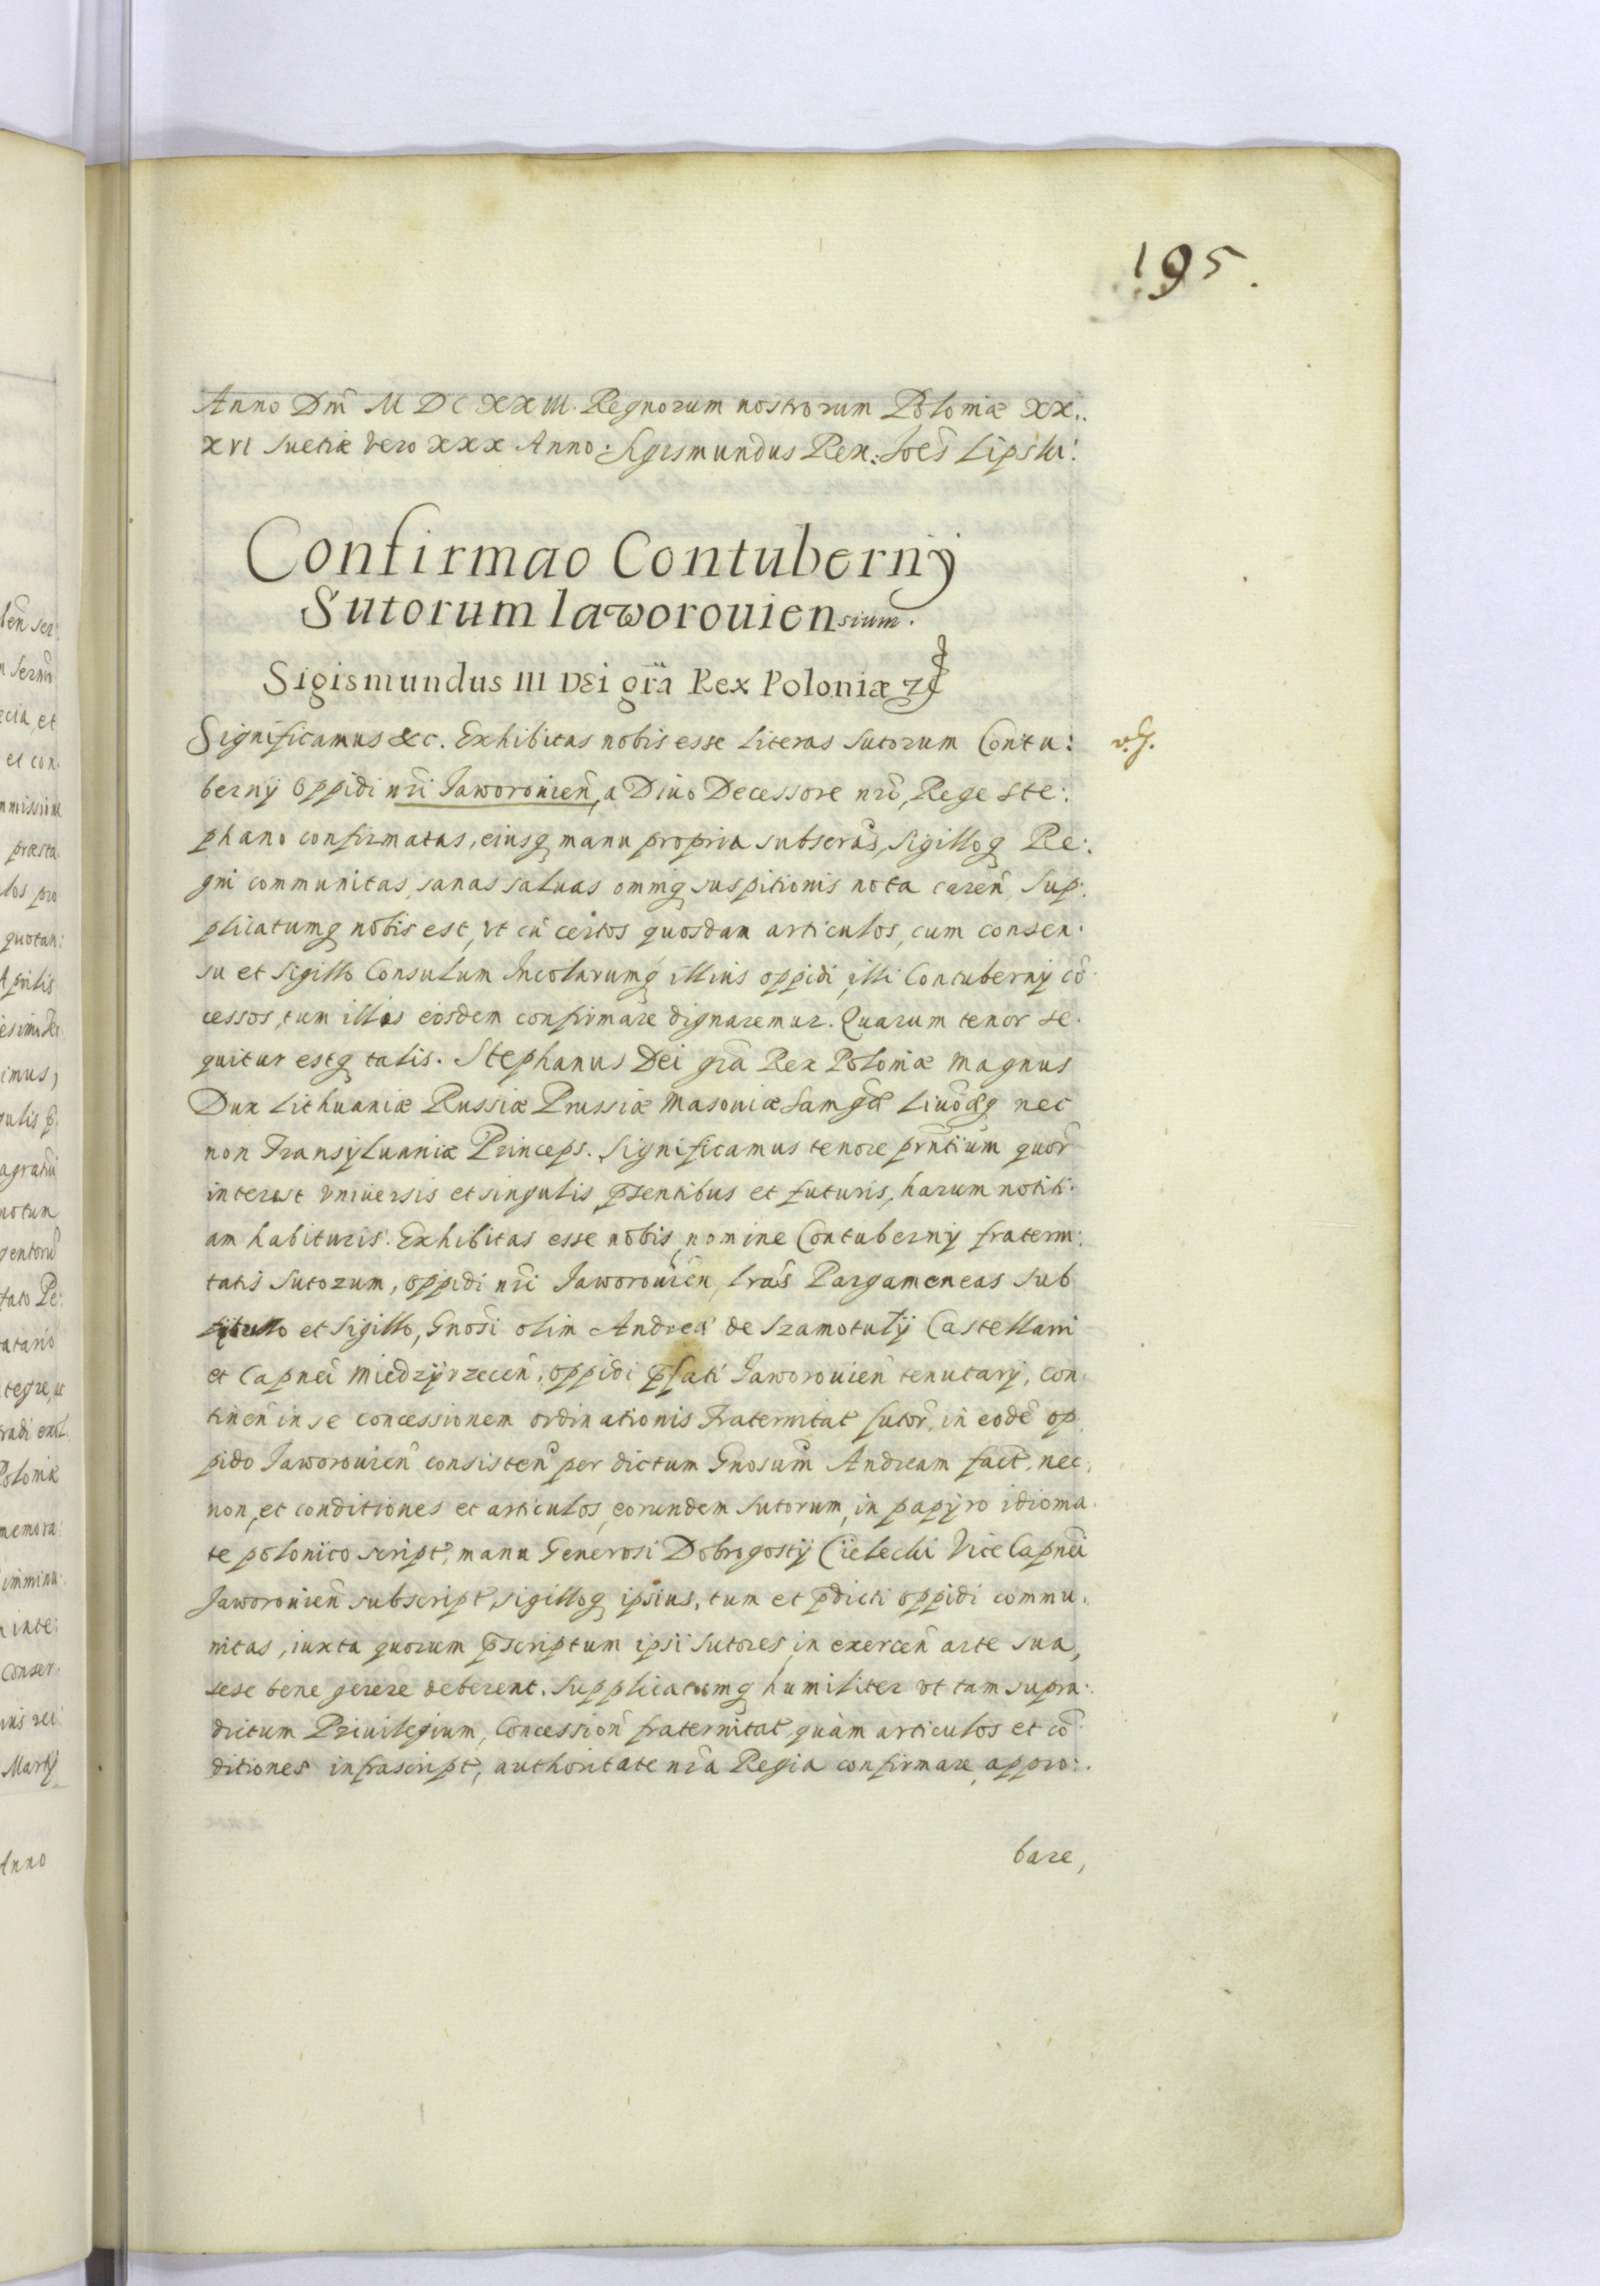 195.
Anno Dni M D C XX III. Regnorum nostrorum Poloniæ XX..
XVI Suetiæ vero XXX Anno: Sigismundus Rex: Joes Lipski:
Confirmao Contubernÿ
Sutorum Iaworouiensium.
Sigismundus III DEi gra Rex Poloniæ
Significamus &c. Exhibitas nobis esse literas Sutorum Contu:
bernÿ Oppidi nri Jaworouien, a Diuo Decessore nro, Rege Ste:
phano confirmatas, eiusq manu propria subscras, Sigilloq Re:
gni communitas, sanas saluas omniq suspitionis nota caren, Sup:
plicatumq nobis est, vt cu certos quosdam articulos, cum consen:
su et Sigillo Consulum Incolarumq illius oppidi, illi Contubernÿ co:
cessos, tum illos eosdem confirmare dignaremur. Quarum tenor se:
quitur estq talis. Stephanus Dei gra Rex Poloniæ Magnus
Dux Lithuaniæ Russiæ Prussiæ Masouiæ Samgæ Liuoæq nec
non Transyluaniæ Princeps. Significamus tenore prntium quor
interest vniuersis et singulis psentibus et futuris, harum notiti:
am habituris. Exhibitas esse nobis, nomine Contubernÿ fraterni:
tatis Sutorum, oppidi nri Jaworouien, lras Pargameneas sub
titullo et Sigillo, Gnosi olim Andreæ de Szamotulÿ Castellani
et Capnei Miedzÿrzecen, oppidi pfati Jaworouien tenutarÿ, con:
tinen in se concessionem ordinationis Fraternitat sutor, in eode op:
pido Jaworouien consisten per dictum Gnosum Andream fact, nec:
non, et conditiones et articulos, eorundem Sutorum, in papÿro idioma:
te polonico script, manu Generosi Dobrogostÿ Cielecki Vice Capnei
Jaworouien subscript, sigilloq ipsius, tum et pdicti oppidi commu:
nitas, iuxta quorum pscriptum ipsi Sutores, in exercen arte sua,
sese bene gerere deberent. Supplicatumq humiliter vt tam supra:
dictum Priuilegium, Concession fraternitat, quàm articulos et co:
ditiones infrascript, authoritate nra Regia confirmare, appro:
bare,